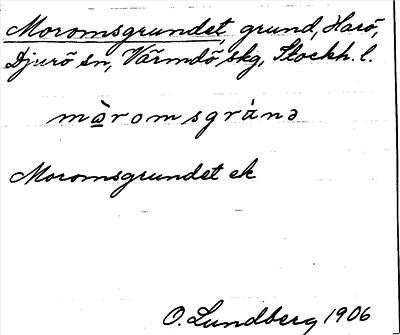 Moromsgrundet, grund, Harö,
Djurö sn, Värmdö skg, Stockh. l.
mò̲romsgrúnə
Moromsgrundet ek
O. Lundberg 1906